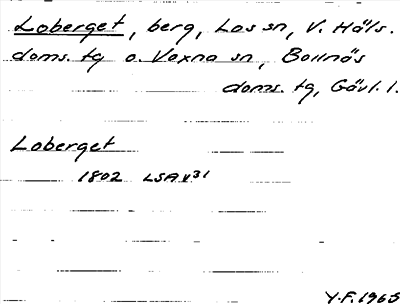 Loberget, berg, Los sn, V. Häls.
doms. tg o. Voxna sn, Bollnäs
doms. tg, Gävl. l.
Loberget
1802 LSA v31
Y.F. 1965